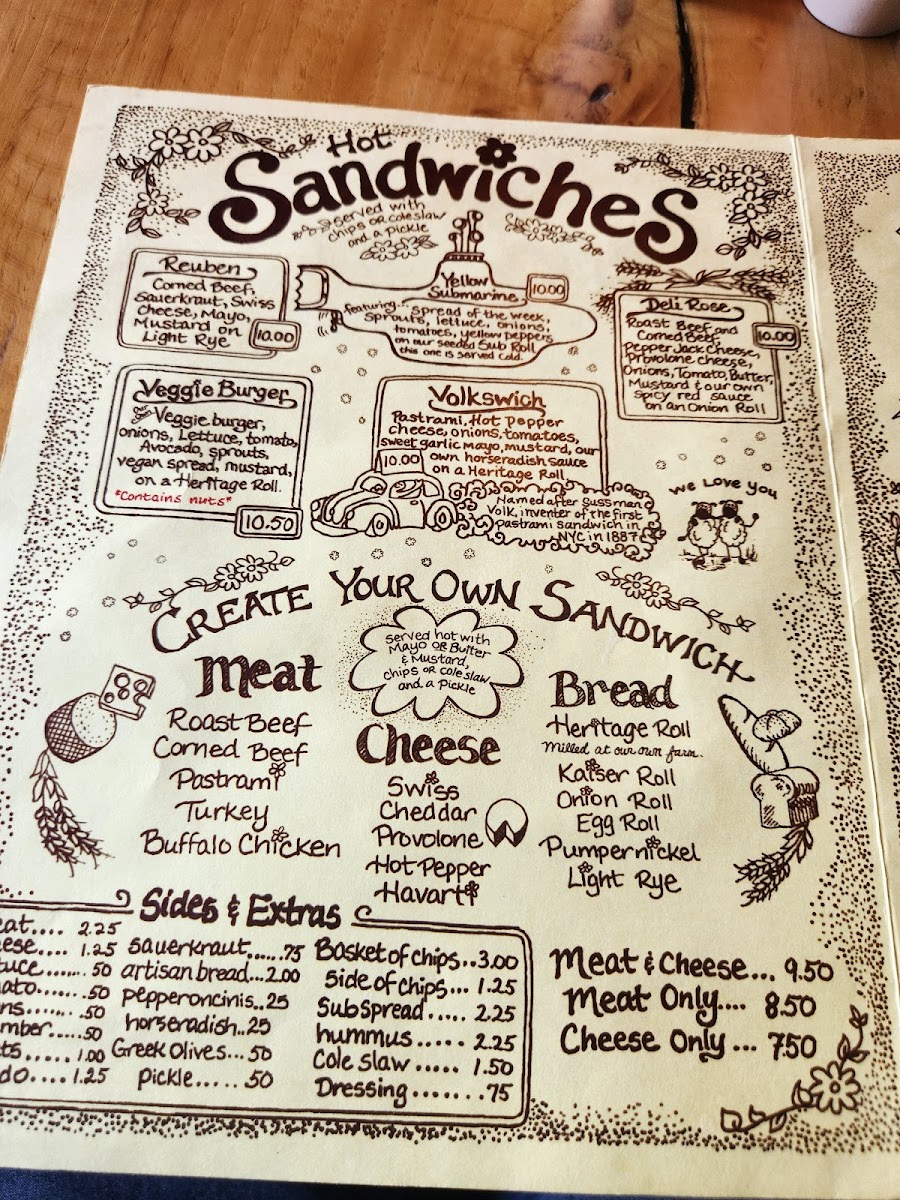 Hot
Sandwiches
served with
chips OR coleslaw
and a pickle
Reuben
Corned Beef,
Sauerkraut, Swiss
Cheese, Mayo,
Mustard on
Light Rye
10.00
Yellow
Submarine
10.00
featuring... spread of the week,
sprouts, lettuce, onions,
tomatoes, yellow peppers
on our seeded Sub Roll
this one is served cold.
Deli Rose
Roast Beef and
Corned Beef,
Pepper Jack Cheese,
Provolone cheese,
Onions, Tomato, Butter,
Mustard & our own
spicy red sauce
on an Onion Roll
10.00
Veggie Burger
our own Veggie burger,
onions, Lettuce, tomato,
Avocado, sprouts,
vegan spread, mustard,
on a Heritage Roll.
*Contains nuts*
10.50
Volkswich
Pastrami, Hot Pepper
cheese, onions, tomatoes,
sweet garlic mayo, mustard, our
own horseradish sauce
on a Heritage Roll
10.00
Named after Sussman
Volk, inventer of the first
pastrami sandwich in
NYC in 1887
We Love You
Create Your Own Sandwich
served hot with
Mayo OR Butter
& Mustard,
chips OR coleslaw
and a Pickle
Meat
Roast Beef
Corned Beef
Pastrami
Turkey
Buffalo Chicken
Cheese
Swiss
Cheddar
Provolone
Hot Pepper
Havarti
Bread
Heritage Roll
Milled at our own farm.
Kaiser Roll
Onion Roll
Egg Roll
Pumpernickel
Light Rye
Sides & Extras
eat.... 2.25
ese.... 1.25
tuce....... .50
ato....... .50
ns....... .50
mber..... .50
ts..... 1.00
do.... 1.25
sauerkraut......75
artisan bread...2.00
pepperoncinis..25
horseradish..25
Greek Olives... 50
pickle...... 50
Basket of chips..3.00
Side of chips... 1.25
Sub spread..... 2.25
hummus..... 2.25
Cole slaw ..... 1.50
Dressing........75
Meat & Cheese... 9.50
Meat Only.... 8.50
Cheese Only ... 7.50